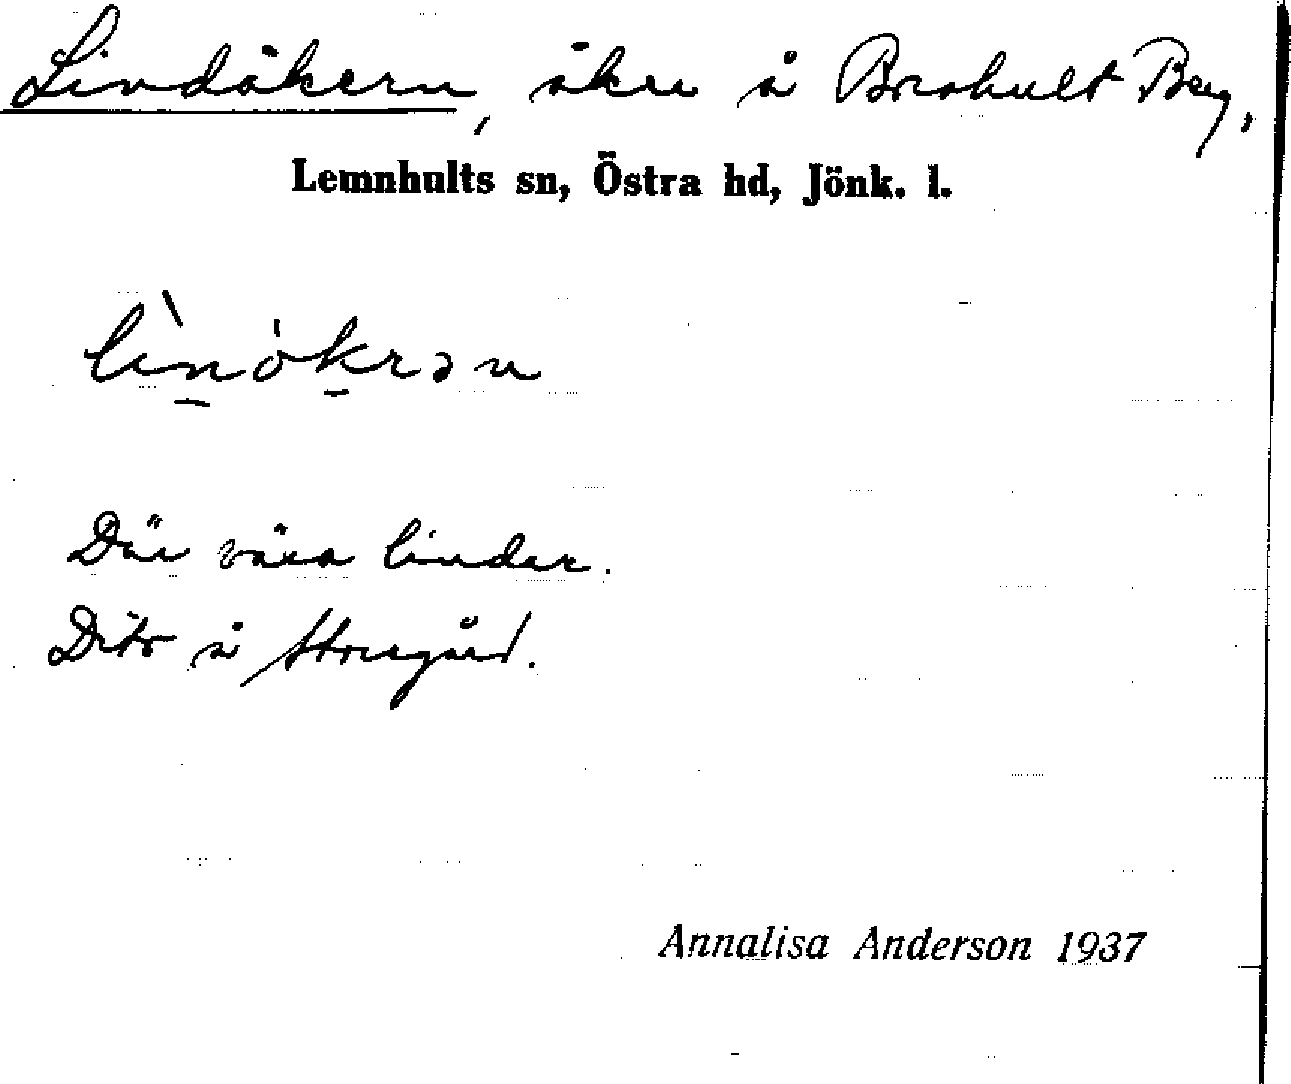 Lindåkern, åker å Brohult Berg,
Lemnhults sn, Östra hd, Jönk. l.
lìnòkrən
Där växa lindar.
Dito å Storegård.
Annalisa Anderson 1937